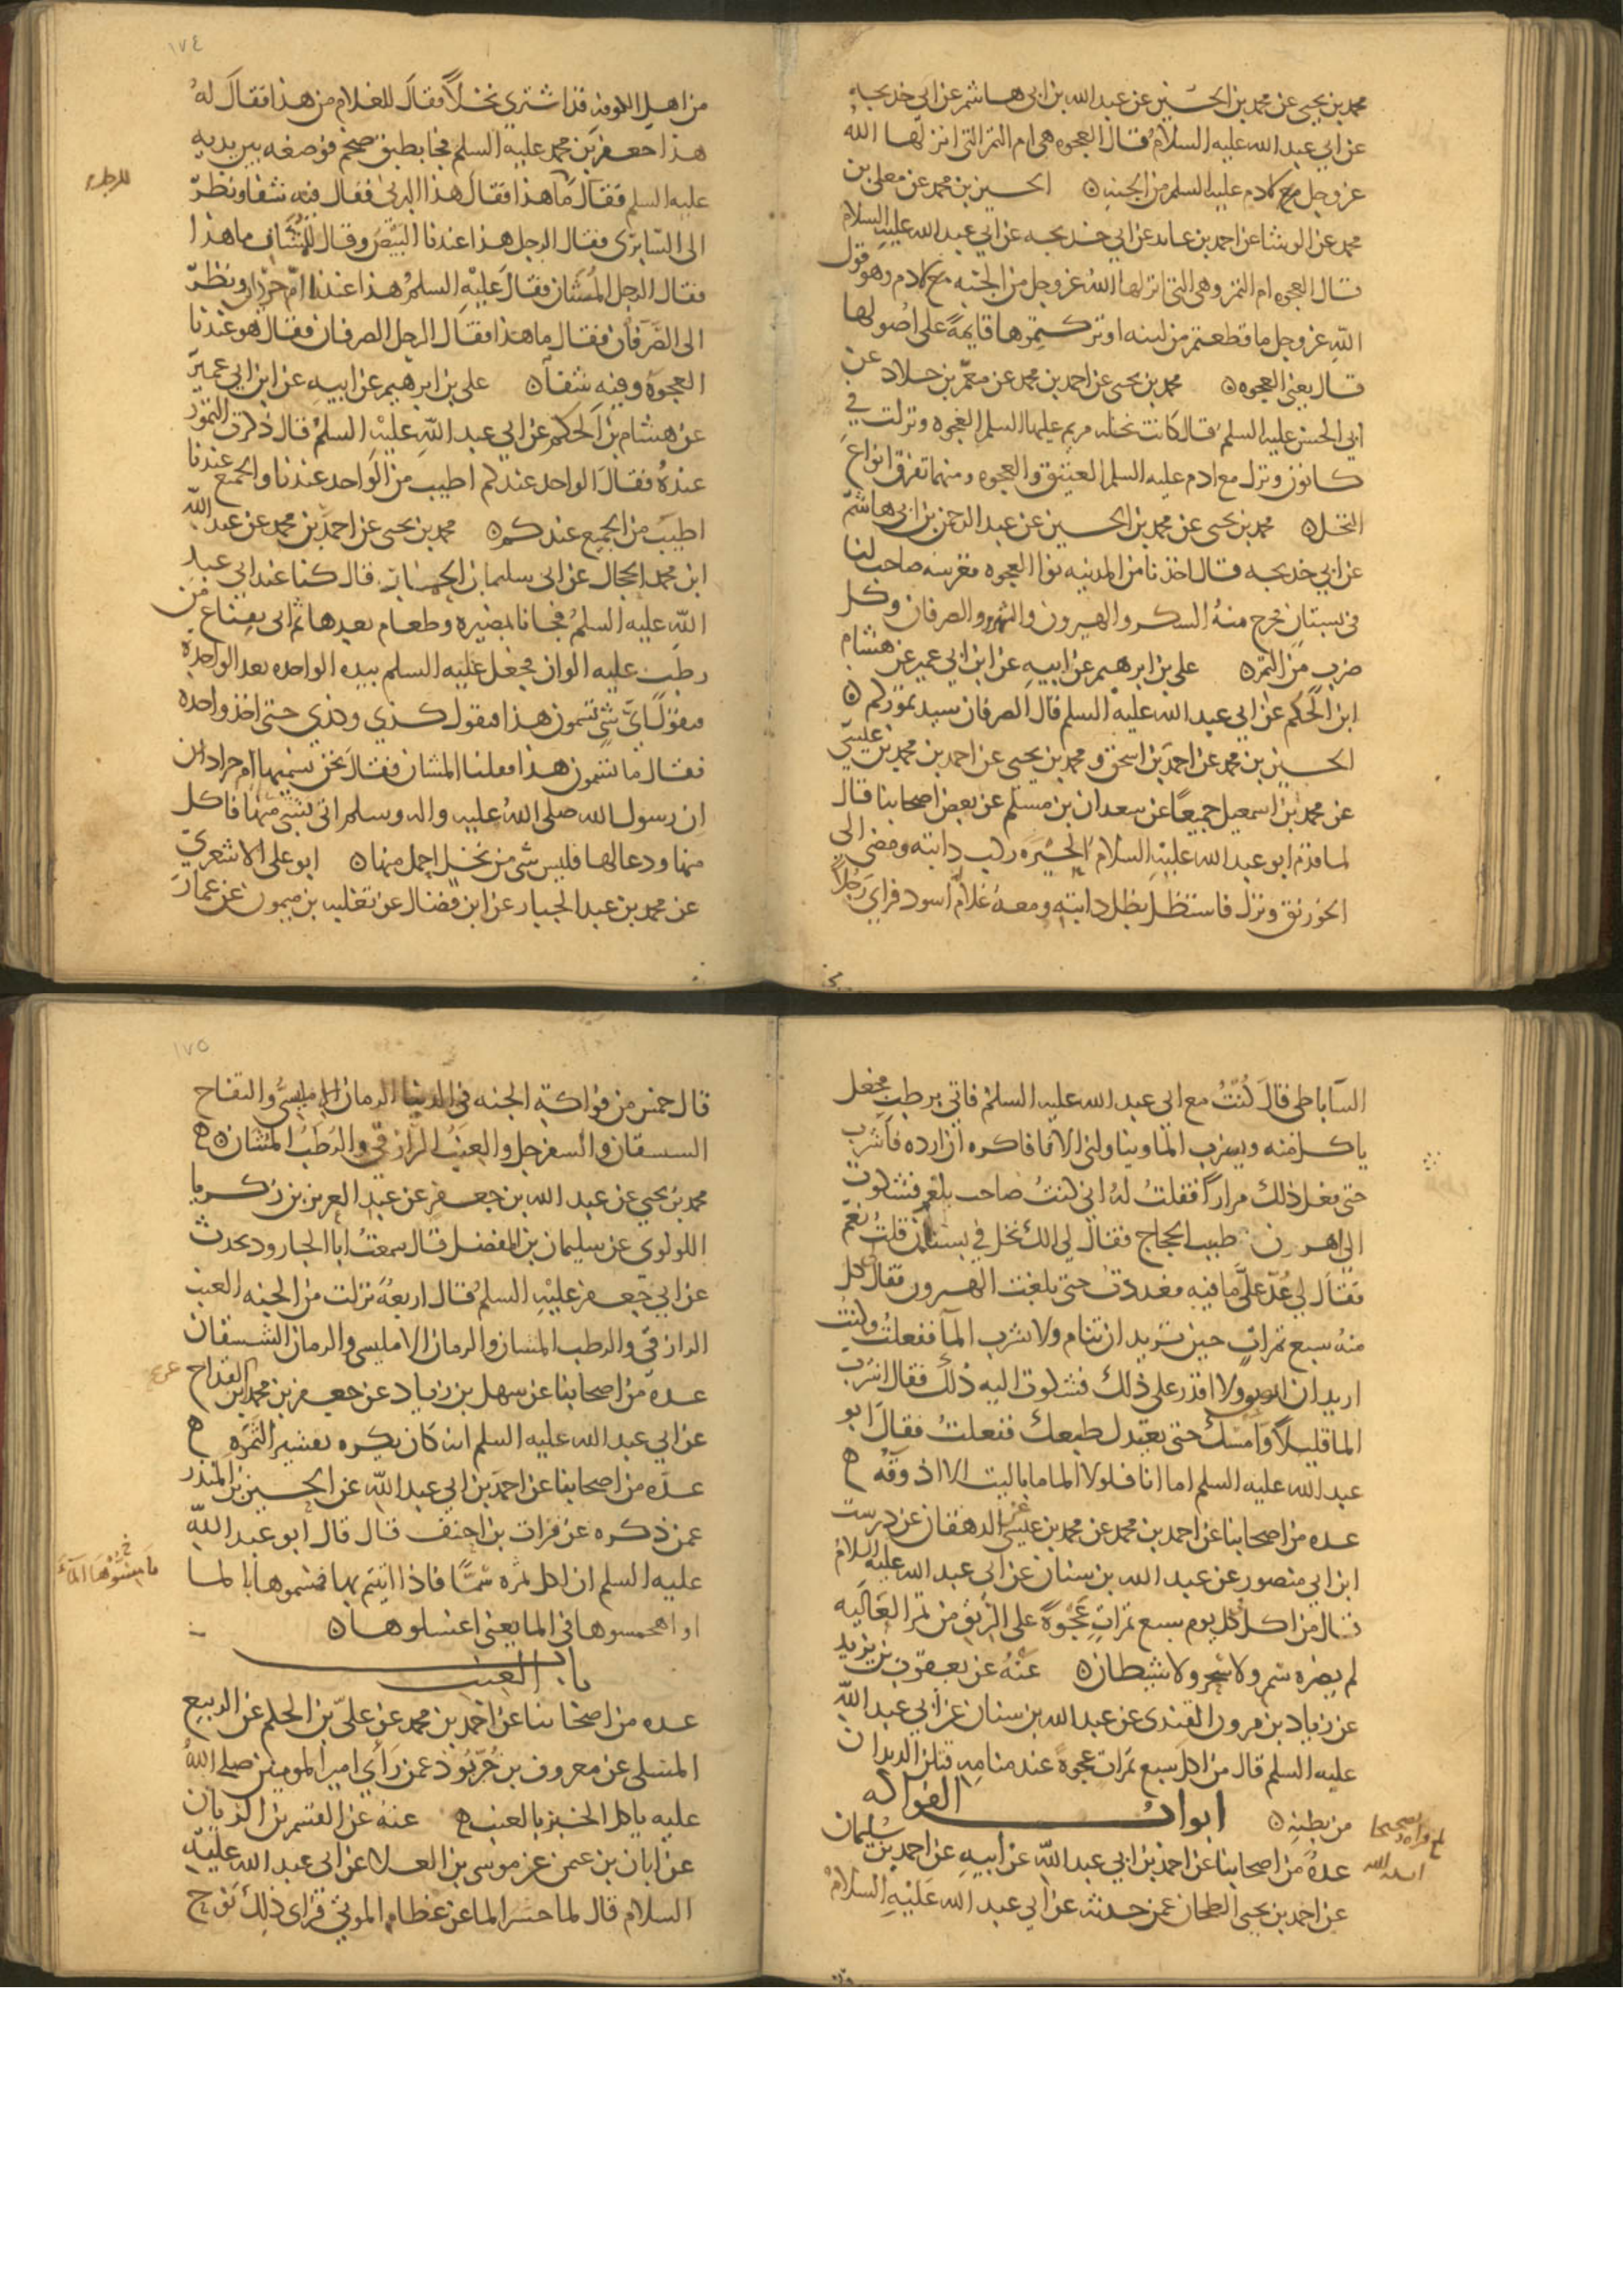 محمد بن يحيى عن محمد بن الحسين عن عبد الله بن ابى هاشم عن ابي خديجه
عن ابي عبد الله عليه السلام قال العجوه هى ام التمر التى انزلها الله
عز وجل مع ادم عليه السلم من الجنه ن الحسين بن محمد عن معلى بن
محمد عن الوشا عن احمد بن عايد عن ابي خديجه عن ابي عبد الله عليه السلام
قال العجوه ام التمر وهى التى انزلها الله عز وجل من الجنه مع ادم وهو قول
الله عز وجل ما قطعتم من لينه او تركتموها قايمة على اصولها
قال يعنى العجوه ن محمد بن يحيى عن احمد بن محمد عن معمر بن خلاد عن
ابي الحسن عليه السلم قال كانت نخله مريم عليها السلم العجوه ونزلت في
كانون ونزل مع ادم عليه السلم العتيق والعجوه ومنهما تفرق انواع
النخل ن محمد بن يحيى عن محمد بن الحسين عن عبد الرحمن بن ابى هاشم
عن ابي خديجه قال اخذنا من المدينه نوا العجوه فغرسه صاحب لنا
فى بستان فخرج منه السكر والهيرون والشهريز والصرفان وكل
ضرب من التمر ن على بن ابرهيم عن ابيه عن ابن ابي عمير عن هشام
ابن الحكم عن ابي عبد الله عليه السلم قال الصرفان سيد تموركم ن
الحسين بن محمد عن احمد بن اسحق و محمد بن يحيى عن احمد بن محمد بن عيسى
عن محمد بن اسمعيل جميعا عن سعدان بن مسلم عن بعض اصحابنا قال
لما قدم ابو عبد الله عليه السلام الحيره ركب دابته ومضى الى
الخورنق ونزل فاستظل بظل دابته ومعه غلام اسود فراي رجلا
١٧٤
من اهل الكوفه قد اشترى نخلا فقال للغلام من هذا فقال له
هذا جعفر بن محمد عليه السلم فجا بطبق ضخم فوضعه بين يديه
عليه السلم فقال ما هذا فقال هذا البرنى فقال فيه شفا ونظر
الى السابرى فقال الرجل هذا عندنا البيض وقال للمشان ما هذا
فقال الرجل المشان فقال عليه السلم هذا عندنا ام جرذان ونظر
الى الصرفان فقال ما هذا فقال الرجل الصرفان فقال هو عندنا
العجوة وفيه شفا ن على بن ابرهيم عن ابيه عن ابن ابي عمير
عن هشام بن الحكم عن ابي عبد الله عليه السلم قال ذكرت التمور
عنده فقال الواحد عندكم اطيب من الواحد عندنا والجمع عندنا
اطيب من الجميع عندكم ن محمد بن يحيى عن احمد بن محمد عن عبد الله
ابن محمد الحجال عن ابى سليمان قال كنا عند ابي عبد
الله عليه السلم فجانا بمضيره وطعام بعدها ثم اتى بقناع من
رطب عليه الوان فجعل عليه السلم بيده الواحده بعد الواحدة
فيقول اى شى تسمون هذا فنقول كذي وكذي حتى اخذ واحده
فقال ما تسمون هذا فقلنا المشان فقال نحن نسميها ام جرذان
ان رسول الله صلى الله عليه واله وسلم اتى بشى منها فاكل
منها ودعا لها فليس شى من نخل احمل منها ن ابو على الاشعري
عن محمد بن عبد الجبار عن ابن فضال عن ثعلبه بن ميمون عن عمار
الساباطى قال كنت مع ابى عبد الله عليه السلم فاتى برطب فجعل
ياكل منه ويشرب الما ويناولنى الانا فاكره ان ارده فاشرب
حتى فعل ذلك مرارا فقلت له انى كنت صاحب بلغم فشكوت
الى اهرن طبيب الحجاج فقال لى الك نخل في بستان قلت نعم
فقال لى عد على ما فيه فعددت حتى بلغت الهيرون فقال كل
منه سبع تمرات حين تريد ان تنام ولا تشرب الما ففعلت وكنت
اريد ان ابصق ولا اقدر على ذلك فشكوت اليه ذلك فقال اشرب
الما قليلا وامسك حتى يعتدل طبعك ففعلت فقال ابو
عبد الله عليه السلم اما انا فلولا الما ما باليت الا اذوقه ه
عده من اصحابنا عن احمد بن محمد عن محمد بن عيسى الدهقان عن درست
ابن ابي منصور عن عبد الله بن سنان عن ابى عبد الله عليه السلام
قال من اكل كل يوم سبع تمرات عجوة على الريق من تمر العاليه
لم يضره سم ولا سحر ولا شيطان ن عنه عن يعقوب بن يزيد
عن زياد بن مرون القندى عن عبد الله بن سنان عن ابي عبد الله
عليه السلم قال من اكل سبع تمرات عجوة عند منامه قتلن الديدان
من بطنه ن ابواب الفواكه
عدة من اصحابنا عن احمد بن ابي عبد الله عن ابيه عن احمد بن سليمان
عن احمد بن يحيى الطحان عمن حدثه عن ابي عبد الله عليه السلام
١٧٥
قال خمس من فواكه الجنه فى الدنيا الرمان الامليسى والتفاح
السسقان والسفرجل والعنب الرازقى والرطب المشان ه
محمد بن يحيى عن عبد الله بن جعفر عن عبد العزيز بن زكريا
اللولوى عن سليمان بن المفضل قال سمعت ابا الجارود يحدث
عن ابي جعفر عليه السلم قال اربعة نزلت من الجنه العنب
الرازقى والرطب المشان والرمان الامليسى والرمان الشسقان
عده من اصحابنا عن سهل بن زياد عن جعفر بن محمد ابن القداح
عن ابي عبد الله عليه السلم انه كان يكره تقشير الثمره ه
عده من اصحابنا عن احمد بن ابي عبد الله عن الحسين بن المنذر
عمن ذكره عن فرات بن احنف قال قال ابو عبد الله
عليه السلم ان لكل ثمره سما فاذا اتيتم بها فمسوها بالما
او اهمسوها فى الما يعنى اغسلوها ن
باب العنب
عده من اصحابنا عن احمد بن محمد عن على بن الحكم عن الربيع
المسلى عن معروف بن خربوذ عمن راي امير المومنين صلى الله
عليه ياكل الخبز بالعنب ه عنه عن القسم بن الزيات
عن ابان بن عثمن عن موسى بن العلا عن ابى عبد الله عليه
السلام قال لما حسر الما عن عظام الموتى فراى ذلك نوح